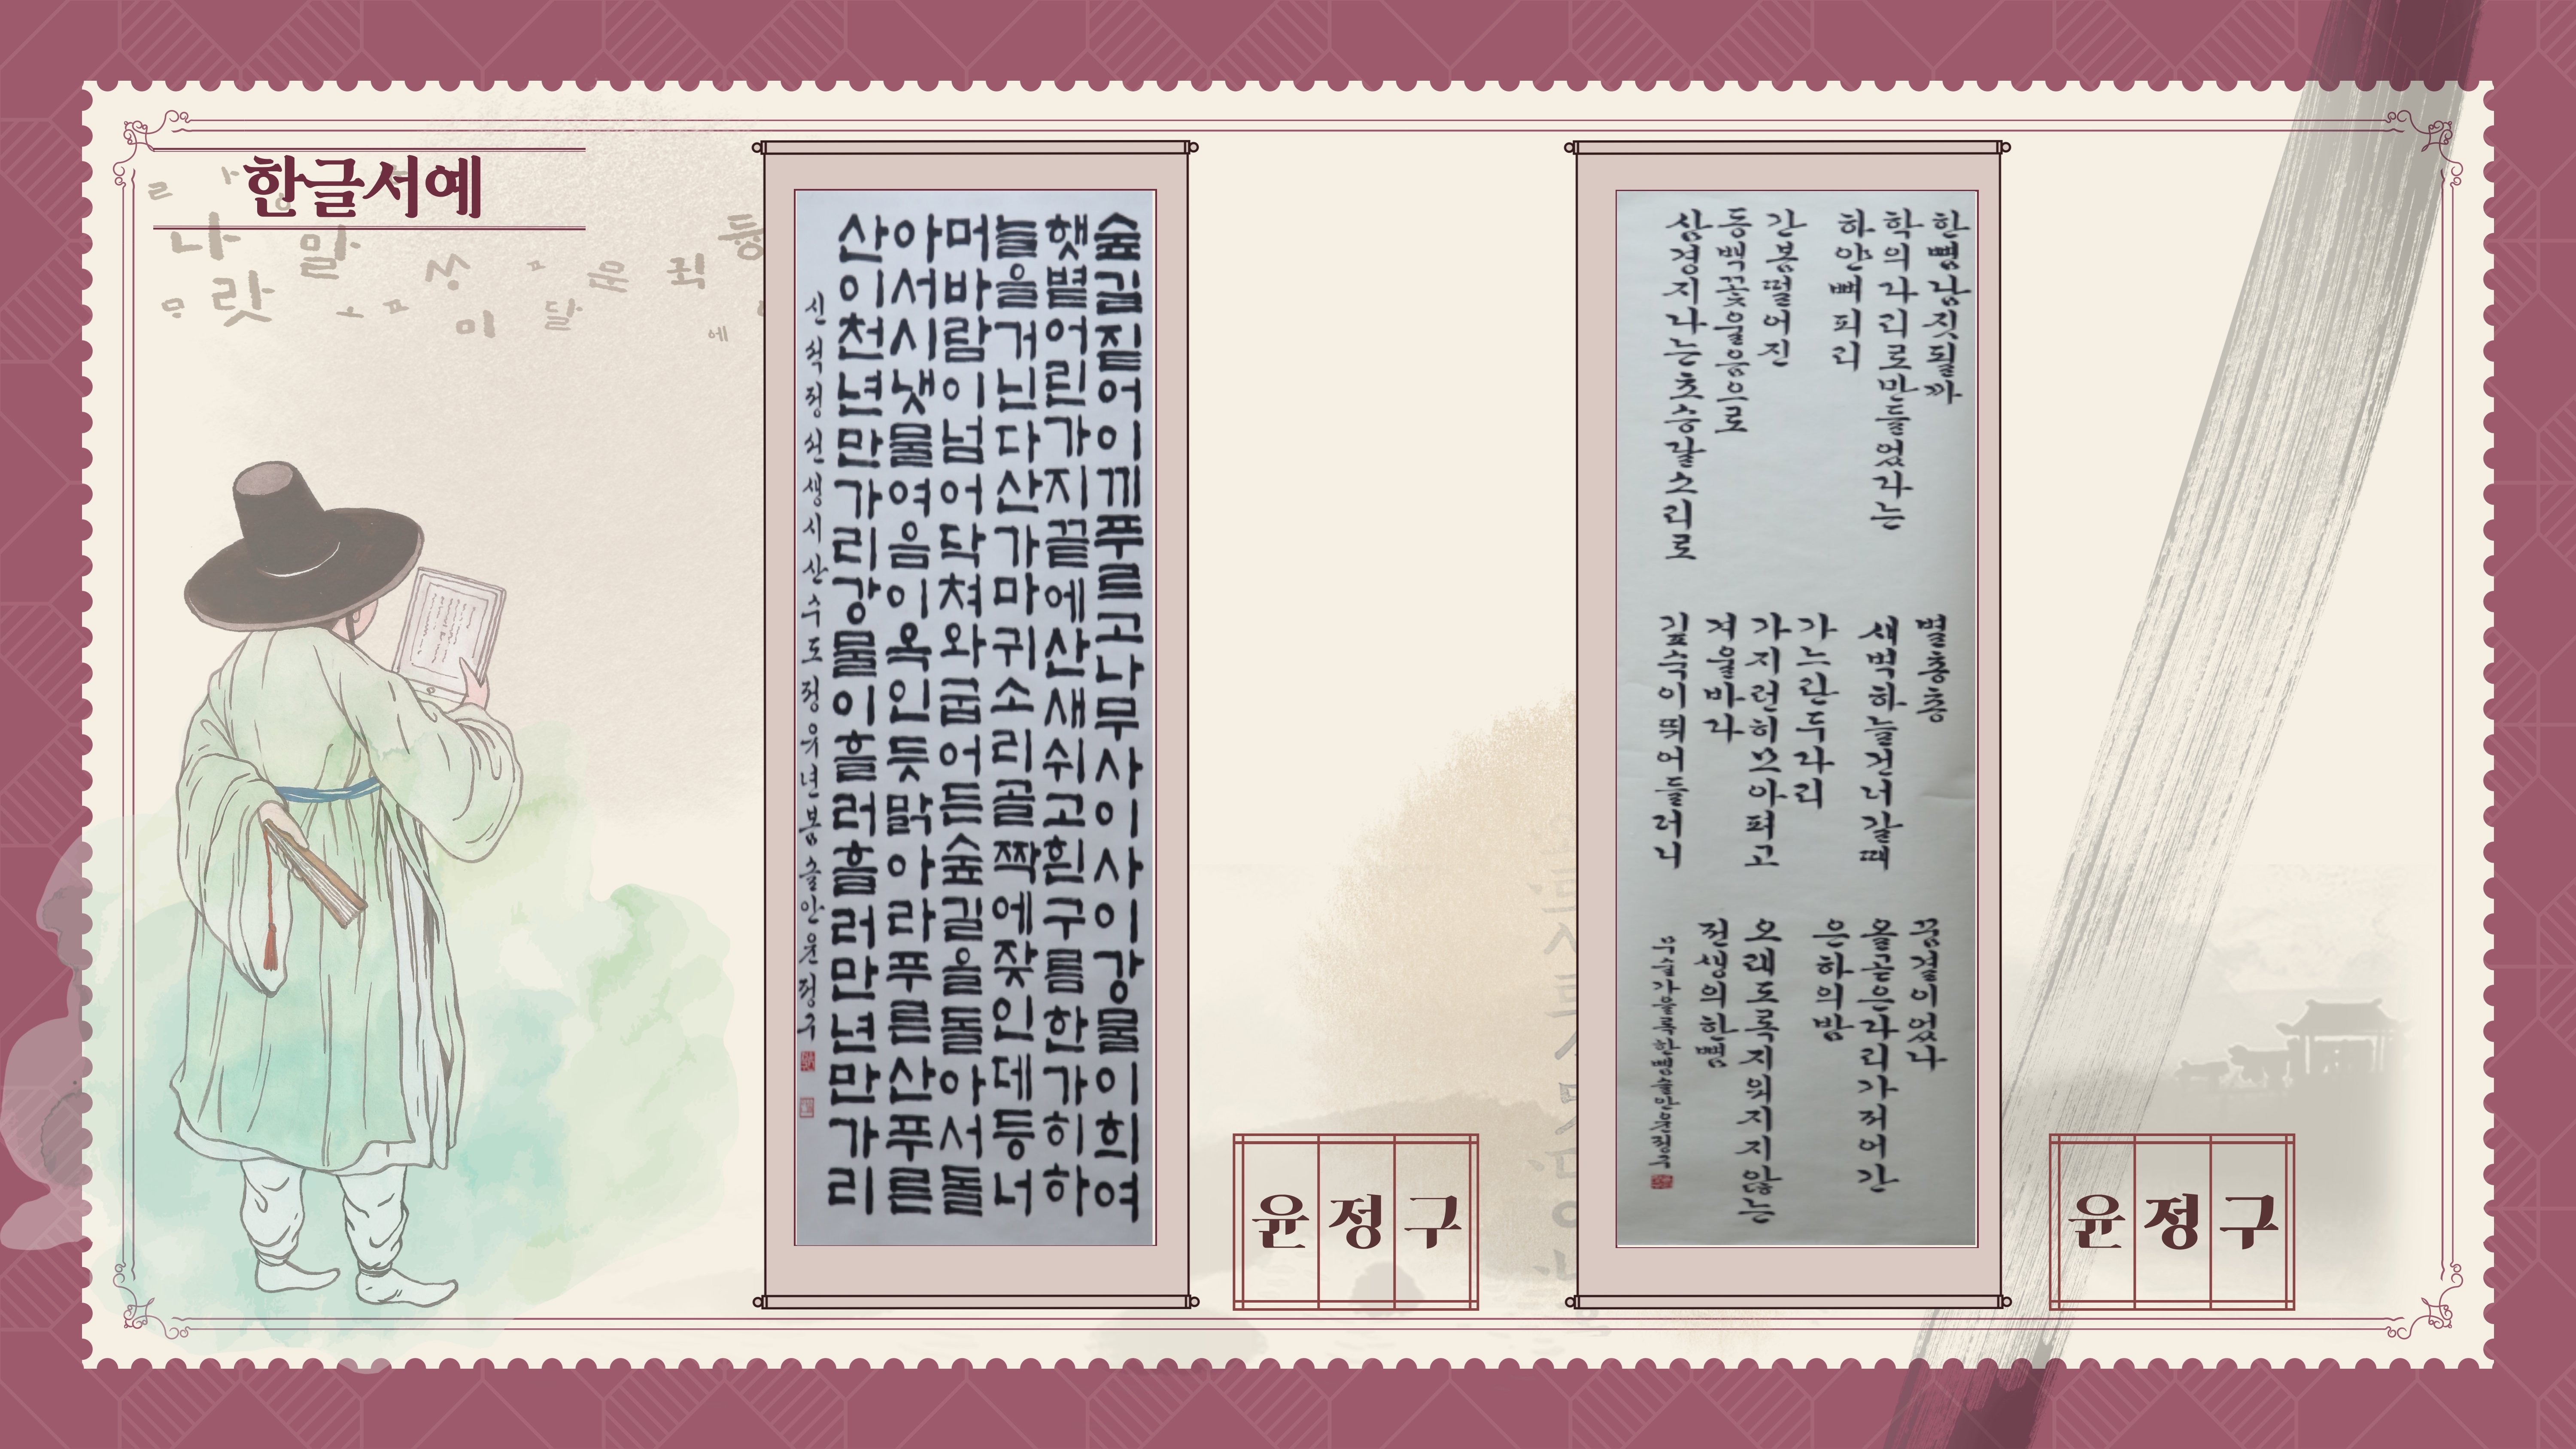 한글서예
숲길짙어이끼푸르고나무사이사이강물이희여
햇볕어린가지끝에산새쉬고흰구름한가히하
늘을거닌다산가마귀소리골짝에잦인데등너
머바람이넘어닥쳐와굽어든숲길을돌아서돌
아서시냇물여음이옥인듯맑아라푸른산푸른
산이천년만가리강물이흘러흘러만년만가리
신석정선생시산수도정유년봄슬안윤정구
윤정구
한뼘남짓될까
학의다리로만들었다는
하얀뼈피리
간봉떨어진
동백꽃울음으로
삼경지나는초승달소리로
별총총
새벽하늘건너갈때
가느란두다리
가지런히모아펴고
겨울바다
깊숙이띄어들러니
꿈결이었나
올곧은다리가저어간
은하의밤
오래도록지워지지않는
전생의한뼘
윤정구
나 말 상 운 죄 등
랏 미 달 에